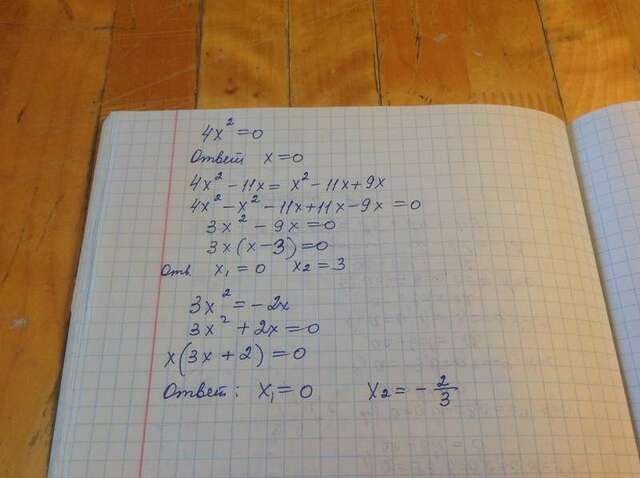 4x² = 0
Ответ x = 0
4x² - 11x = x² - 11x + 9x
4x² - x² - 11x + 11x - 9x = 0
3x² - 9x = 0
3x(x - 3) = 0
Отв. x₁ = 0 x₂ = 3
3x² = -2x
3x² + 2x = 0
x(3x + 2) = 0
Ответ: x₁ = 0 x₂ = - 2/3